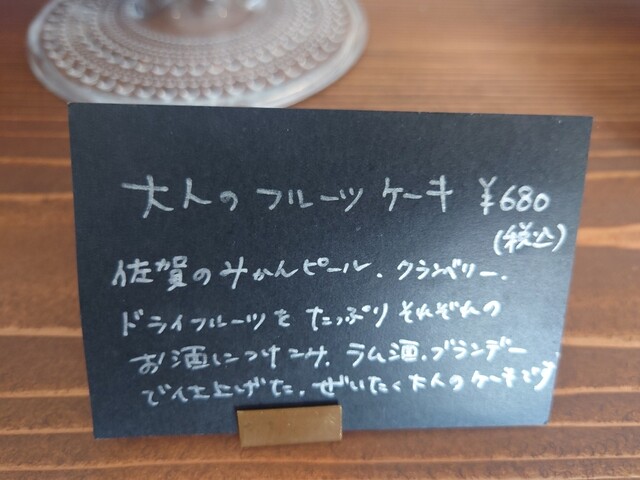 大人のフルーツケーキ ¥680
(税込)
佐賀のみかんピール、クランベリー、
ドライフルーツをたっぷりそれぞれの
お酒につけこみ、ラム酒、ブランデー
で仕上げた、ぜいたく大人のケーキです